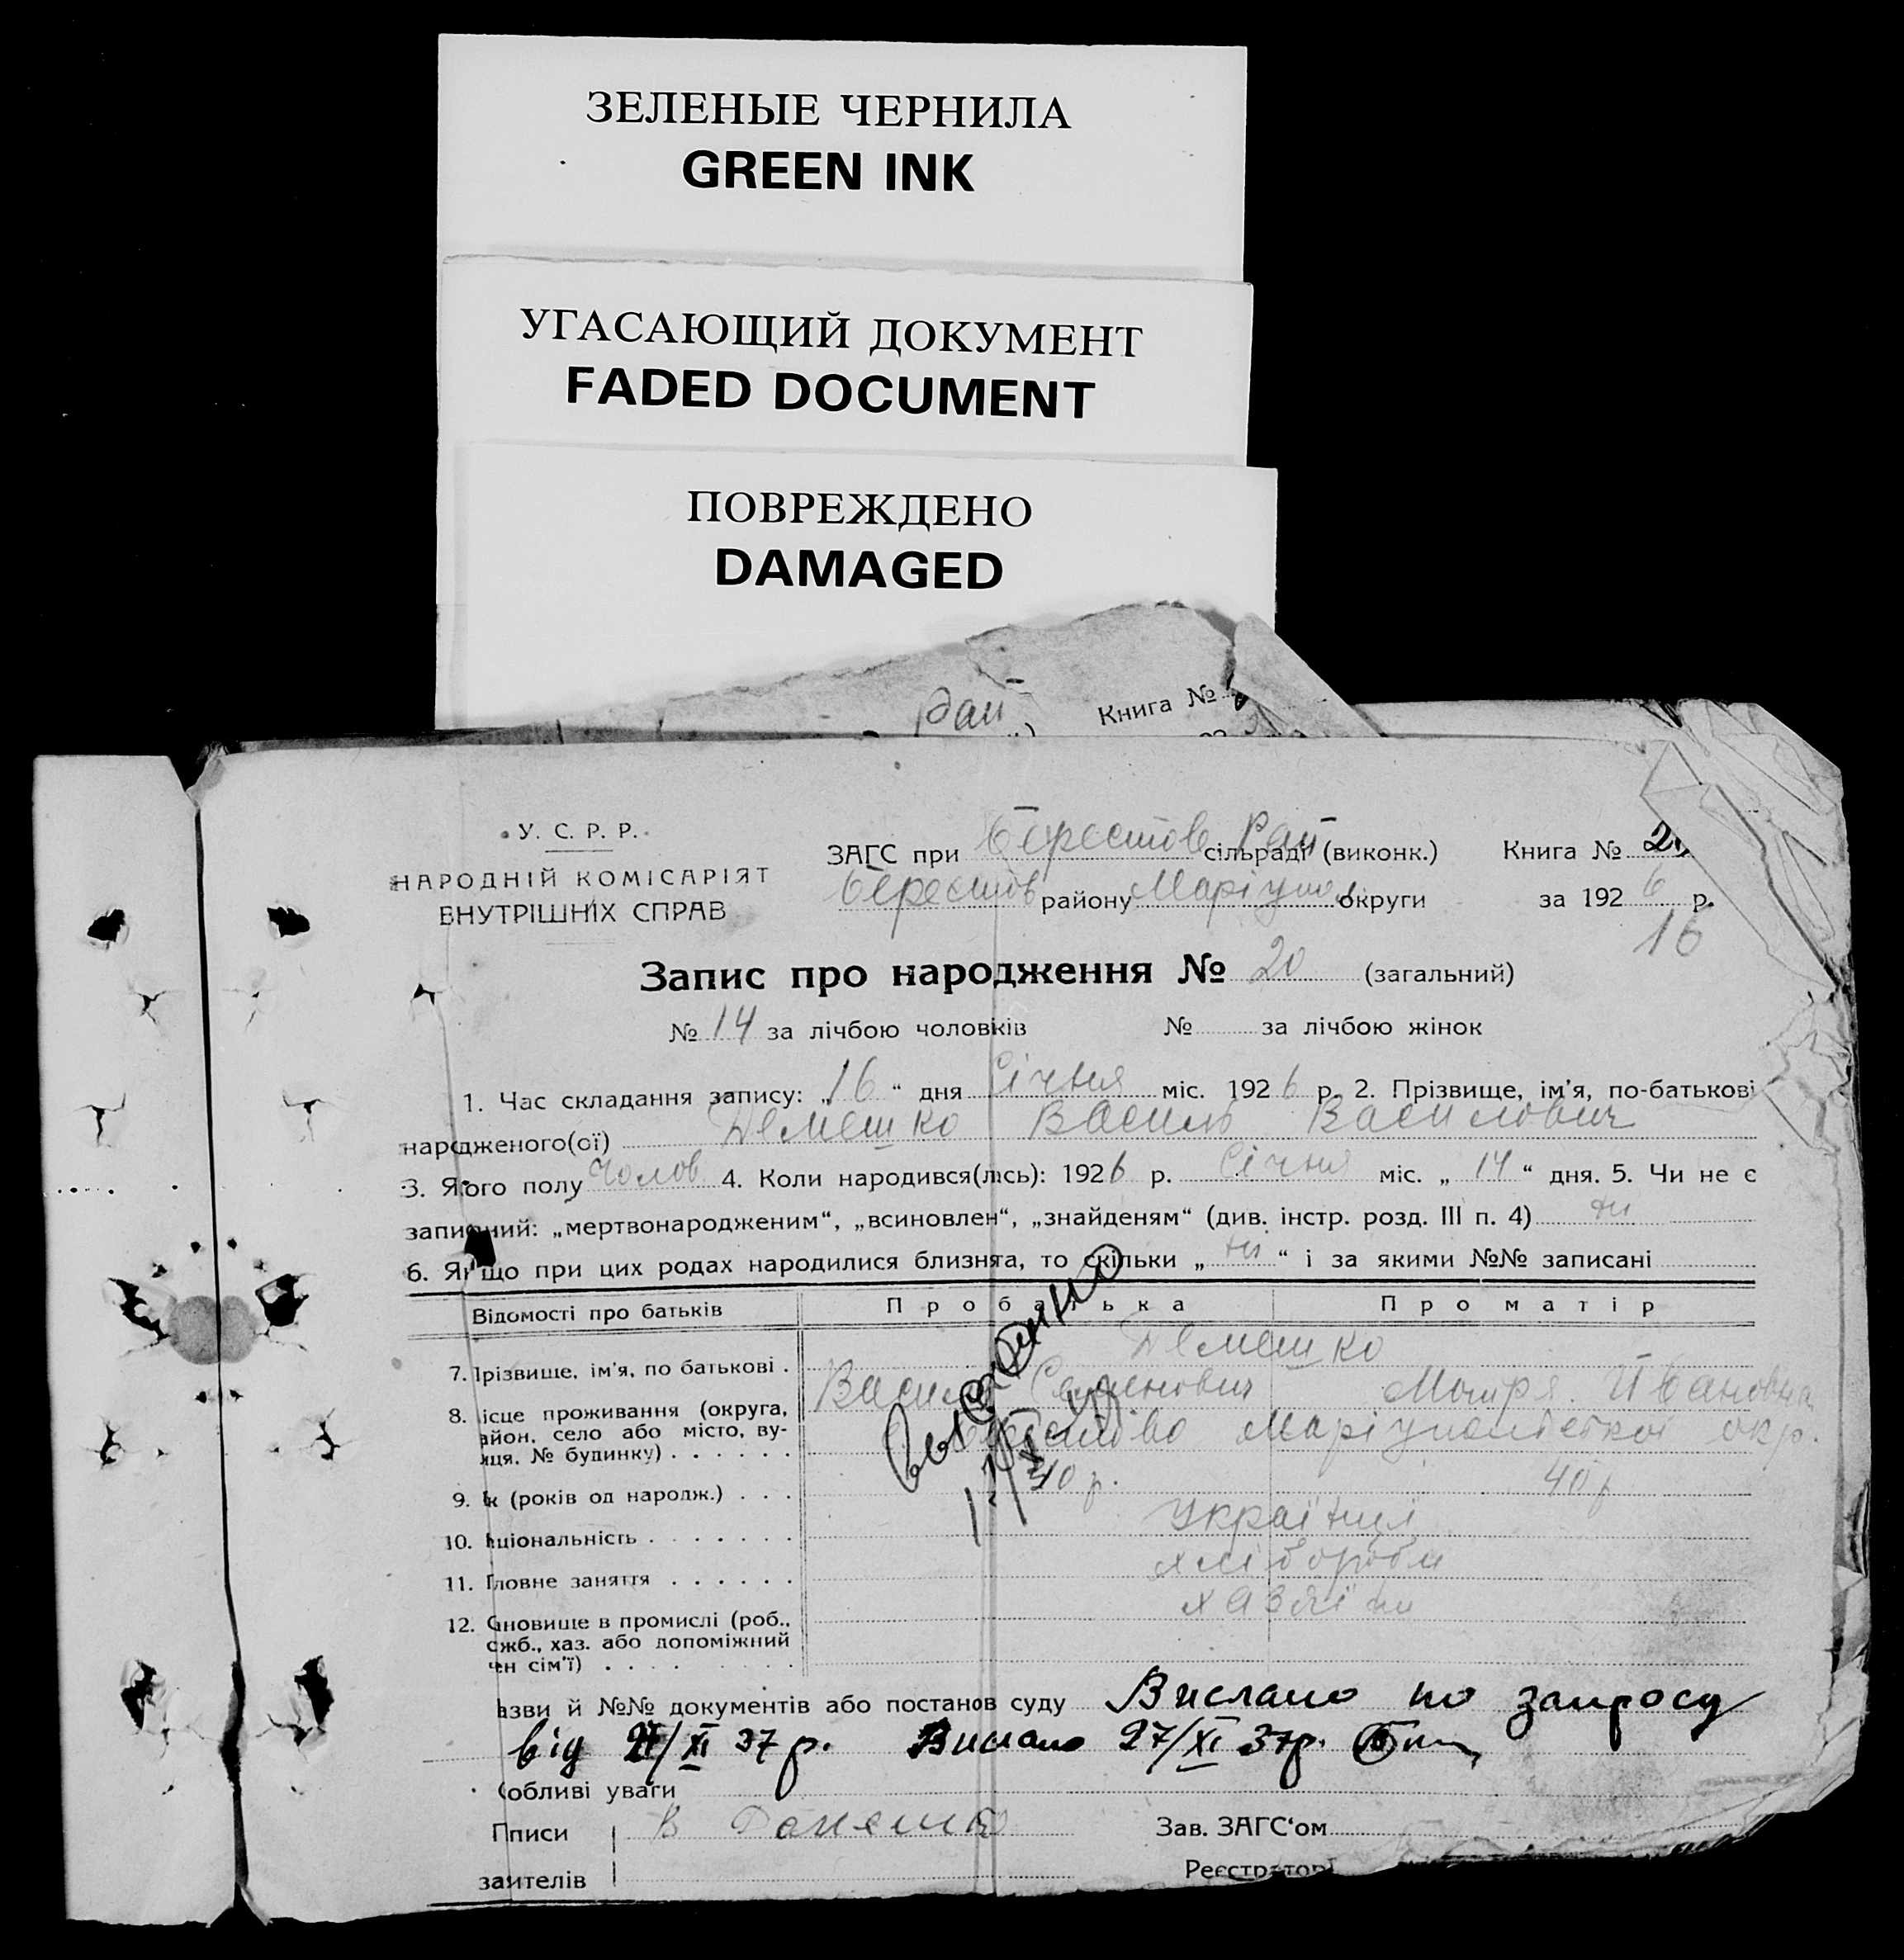 ЗЕЛЕНЫЕ ЧЕРНИЛА
GREEN INK
УГАСАЮЩИЙ ДОКУМЕНТ
FADED DOCUMENT
ПОВРЕЖДЕНО
DAMAGED
Рай Книга №
У. С. Р. Р.
НАРОДНІЙ КОМІСАРІЯТ
ВНУТРІШНІХ СПРАВ
ЗАГС при Берестов Рай сільраді (виконк.) Книга №
Берестов району Маріупол округи за 1926 р.
16
Запис про народження № 20 (загальний)
№ 14 за лічбою чоловіків № за лічбою жінок
1. Час складання запису: „16“ дня Січня міс. 1926 р. 2. Прізвище, ім'я, по-батькові
народженого(ої) Демешко Василь Василович
3. Якого полу Чолов 4. Коли народився(лась): 1926 р. Січня міс. „14“ дня. 5. Чи не є
записаний: „мертвонародженим“, „всиновлен“, „знайденям“ (див. інстр. розд. III п. 4) ні
6. Якщо при цих родах народилися близнята, то скільки „ні“ і за якими №№ записані
Відомості про батьків Про батька Про матір
Демешко
7. Прізвище, ім'я, по батькові . Василь Семенович Мотря Ивановна
8. ісце проживання (округа, айон, село або місто, ву-
иця, № будинку) . . . . . . Маріупольської окр.
9. ік (років од народж.) . . . 40 р. 40 р
10. аціональність . . . . . . . Українці
11. Головне заняття . . . . . . хлібороби
12. Становище в промислі (роб., служб., хаз. або допоміжний
член сім'ї) . . . . . . . . хазяїни
азви й №№ документів або постанов суду Вислано по запросу
від XI 37 р. Вислано 27/XI 37р.
собливі уваги
Підписи В Зав. ЗАГС'ом
заявителів Реєстратор